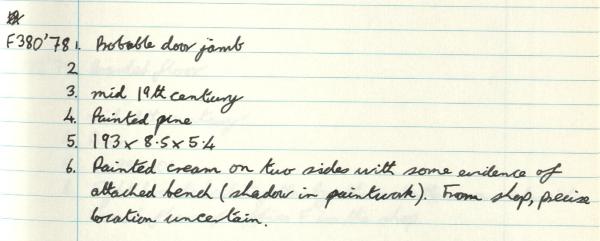 F380'78 1. Probable door jamb
2
3. mid 19th century
4. Painted pine
5. 193 x 8.5 x 5.4
6. Painted cream on two sides with some evidence of
attached bench (shadow in paintwork). From shop, precise
location uncertain.